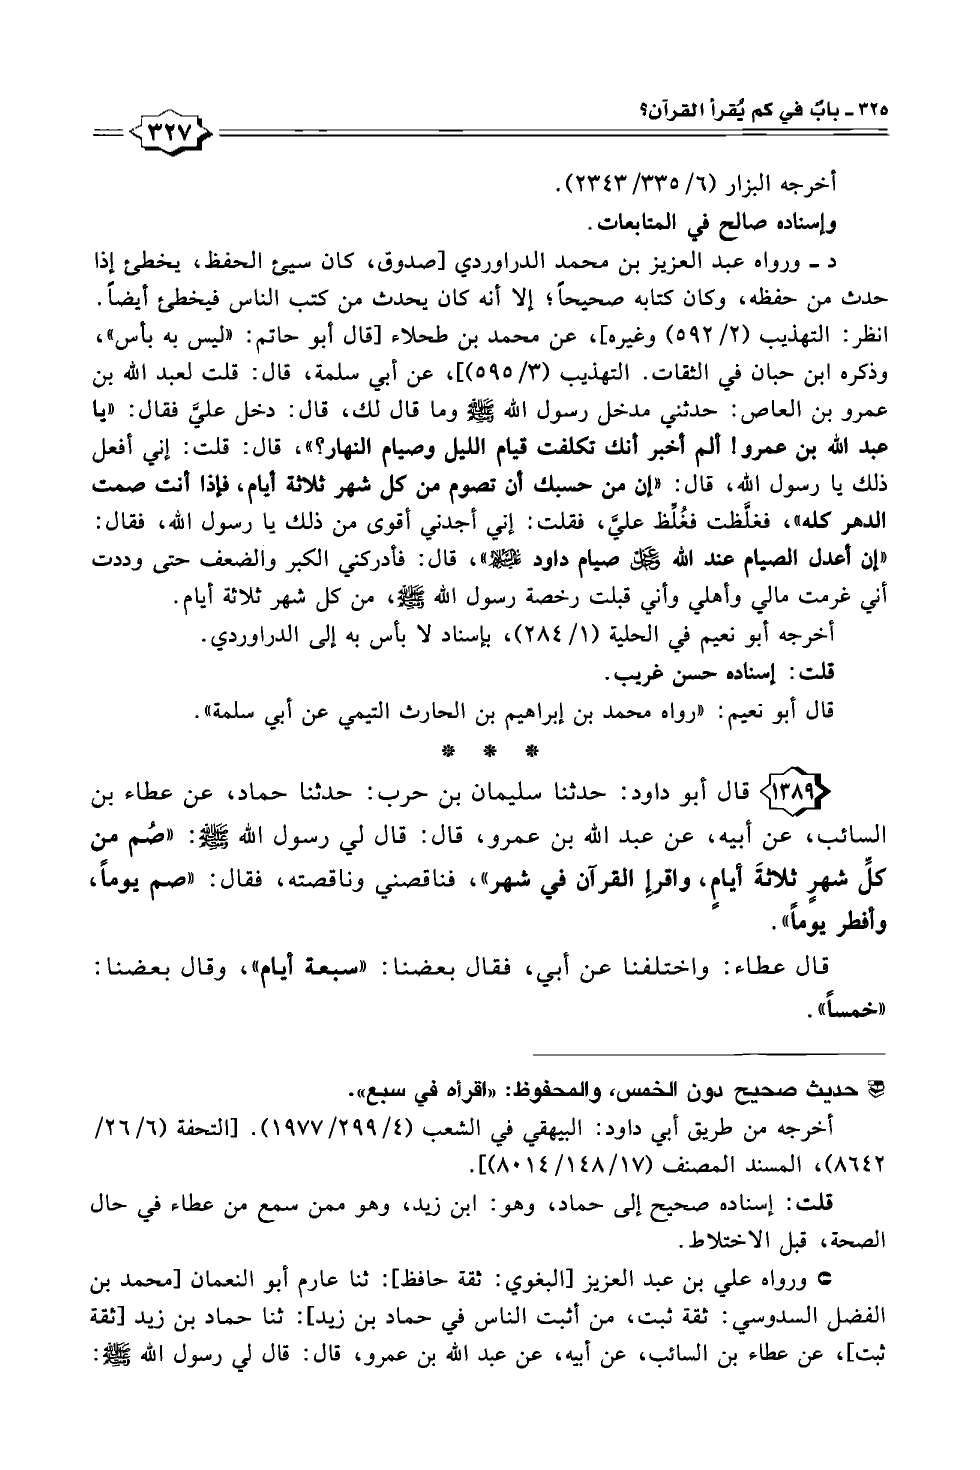 ٣٢٥ - بابٌ في كم يُقرأ القرآن؟
٣٢٧
أخرجه البزار (٦/ ٣٣٥/ ٢٣٤٣).
وإسناده صالح في المتابعات.
د ـ ورواه عبد العزيز بن محمد الدراوردي [صدوق، كان سيئ الحفظ، يخطئ إذا
حدث من حفظه، وكان كتابه صحيحاً؛ إلا أنه كان يحدث من كتب الناس فيخطئ أيضاً.
انظر: التهذيب (٢/ ٥٩٢) وغيره]، عن محمد بن طحلاء [قال أبو حاتم: «ليس به بأس»،
وذكره ابن حبان في الثقات. التهذيب (٣/ ٥٩٥)]، عن أبي سلمة، قال: قلت لعبد الله بن
عمرو بن العاص: حدثني مدخل رسول الله ﷺ وما قال لك، قال: دخل عليَّ فقال: «يا
عبد الله بن عمرو! ألم أخبر أنك تكلفت قيام الليل وصيام النهار؟»، قال: قلت: إني أفعل
ذلك يا رسول الله، قال: «إن من حسبك أن تصوم من كل شهر ثلاثة أيام، فإذا أنت صمت
الدهر كله»، فغلَّظت فغُلِّظ عليَّ، فقلت: إني أجدني أقوى من ذلك يا رسول الله، فقال:
«إن أعدل الصيام عند الله ﷿ صيام داود ﵇»، قال: فأدركني الكبر والضعف حتى وددت
أني غرمت مالي وأهلي وأني قبلت رخصة رسول الله ﷺ، من كل شهر ثلاثة أيام.
أخرجه أبو نعيم في الحلية (١/ ٢٨٤)، بإسناد لا بأس به إلى الدراوردي.
قلت: إسناده حسن غريب.
قال أبو نعيم: «رواه محمد بن إبراهيم بن الحارث التيمي عن أبي سلمة».
* * *
١٣٨٩ قال أبو داود: حدثنا سليمان بن حرب: حدثنا حماد، عن عطاء بن
السائب، عن أبيه، عن عبد الله بن عمرو، قال: قال لي رسول الله ﷺ: «صُم من
كلِّ شهرٍ ثلاثةَ أيامٍ، واقرإِ القرآن في شهر»، فناقصني وناقصته، فقال: «صم يوماً،
وأفطر يوماً».
قال عطاء: واختلفنا عن أبي، فقال بعضنا: «سبعة أيام»، وقال بعضنا:
«خمساً».
حديث صحيح دون الخمس، والمحفوظ: «اقرأه في سبع».
أخرجه من طريق أبي داود: البيهقي في الشعب (٤/ ٢٩٩/ ١٩٧٧). [التحفة (٦/ ٢٦/
٨٦٤٢)، المسند المصنف (١٧/ ١٤٨/ ٨٠١٤)].
قلت: إسناده صحيح إلى حماد، وهو: ابن زيد، وهو ممن سمع من عطاء في حال
الصحة، قبل الاختلاط.
ورواه علي بن عبد العزيز [البغوي: ثقة حافظ]: ثنا عارم أبو النعمان [محمد بن
الفضل السدوسي: ثقة ثبت، من أثبت الناس في حماد بن زيد]: ثنا حماد بن زيد [ثقة
ثبت]، عن عطاء بن السائب، عن أبيه، عن عبد الله بن عمرو، قال: قال لي رسول الله ﷺ: